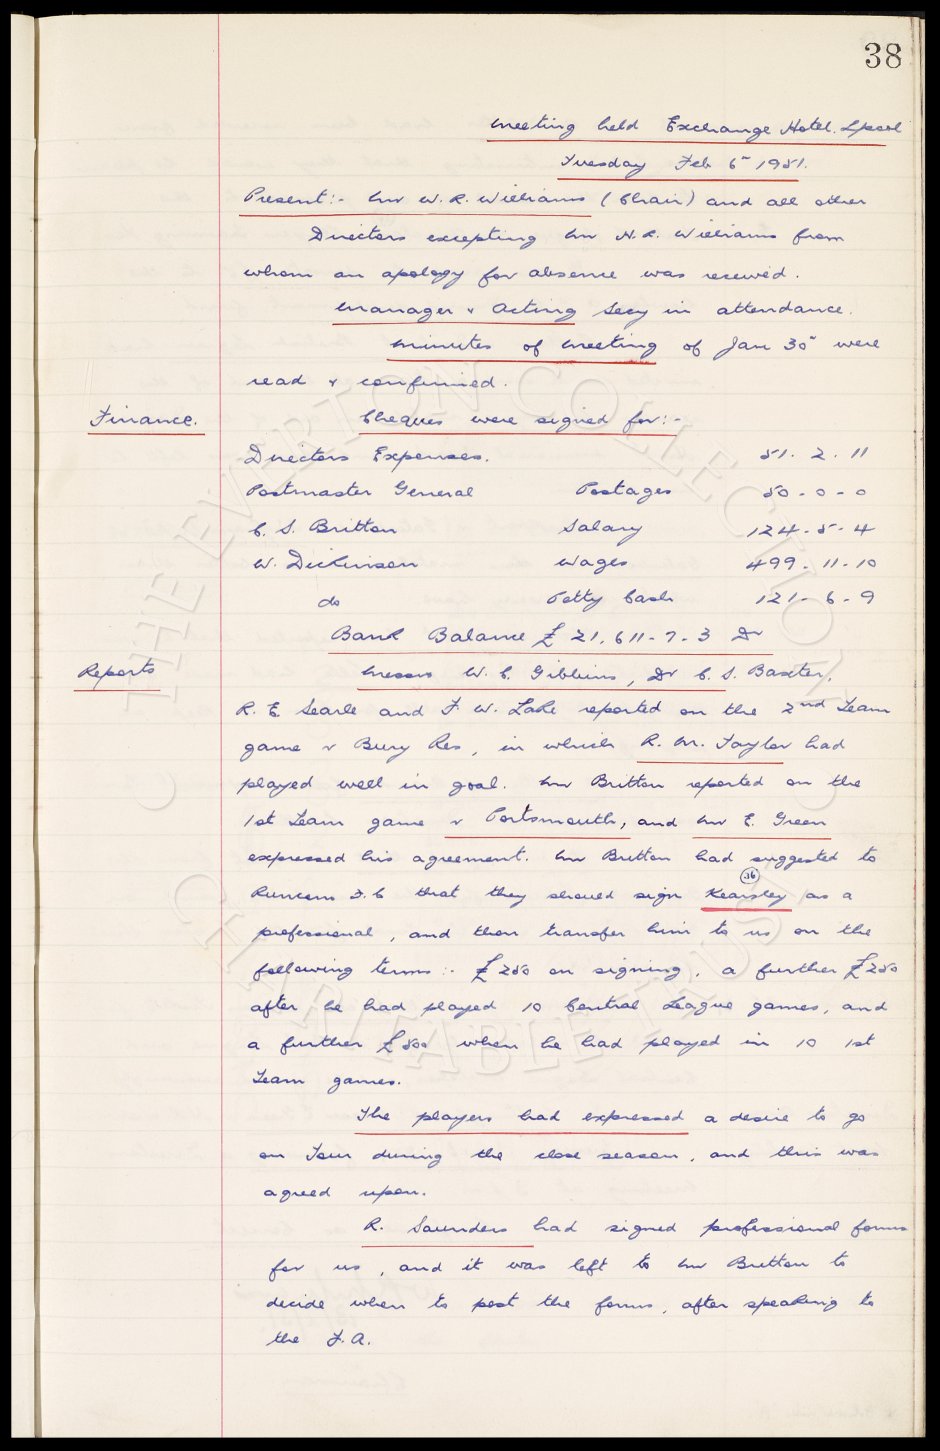 38
Meeting held Exchange Hotel. Lpool
Tuesday Feb 6th 1951.
Present:- Mr W. R. Williams (Chair) and all other
Directors excepting Mr N. R. Williams from
whom an apology for absence was received.
Manager & Acting Secy in attendance.
Minutes of Meeting of Jan 30th were
read & confirmed.
Finance. Cheques were signed for:-
Directors Expenses. 51. 2. 11
Postmaster General Postages 50-0-0
C. S. Britton Salary 124-5-4
W. Dickinson Wages 499-11-10
do Petty Cash 121-6-9
Bank Balance £21,611-7-3 Dr
Reports Messrs W. C. Gibbins, Dr C. S. Baxter,
R. E. Searle and F. W. Lake reported on the 2nd Team
game v Bury Res, in which R. M. Taylor had
played well in goal. Mr Britton reported on the
1st Team game v Portsmouth, and Mr E. Green
expressed his agreement. Mr Britton had suggested to
36
Runcorn F.C that they should sign Kearsley as a
professional, and then transfer him to us on the
following terms:- £250 on signing, a further £250
after he had played 10 Central League games, and
a further £500 when he had played in 10 1st
Team games.
The players had expressed a desire to go
on Tour during the close season, and this was
agreed upon.
R. Saunders had signed professional forms
for us, and it was left to Mr Britton to
decide when to post the forms, after speaking to
the F.A.
THE EVERTON COLLECTION
CHARITABLE TRUST